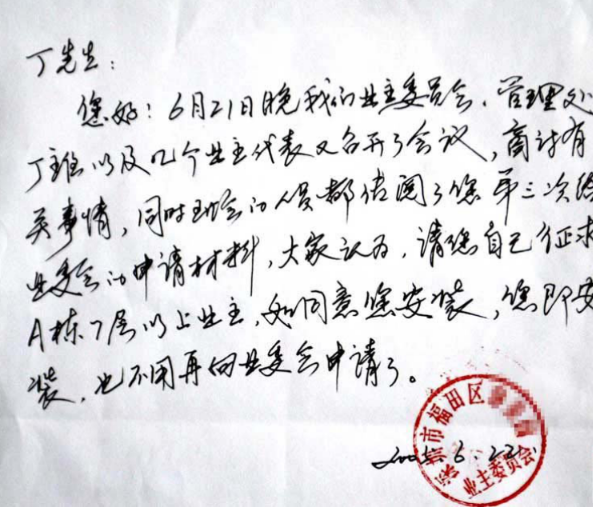 丁先生：
您好！6月21日晚我们业主委员会、管理处
丁主任以及几个业主代表又召开了会议，商讨有
关事情，同时到会的人员都传阅了您第三次给
业委会的申请材料，大家认为，请您自己征求
A栋7层以上业主，如同意您安装，您即安
装，也不用再向业委会申请了。
深圳市福田区
业主委员会
6.22